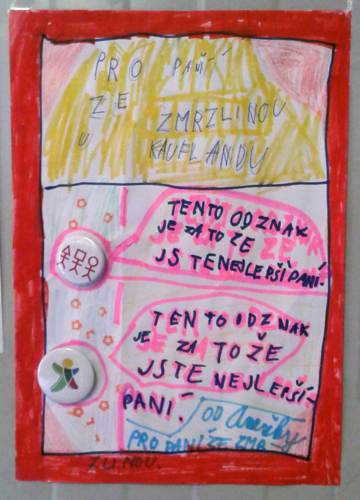 PRO PANÍ
ZE ZMRZLINOU
U KAUFLANDU
TENTO ODZNAK
JE ZA TO ZE
JSTE NEJLEPŠÍ PANÍ.
TENTO ODZNAK
JE ZA TO ŽE
JSTE NEJLEPŠÍ
PANÍ. OD Anežky
PRO PANÍ ZE ZMR
ZLINOU.